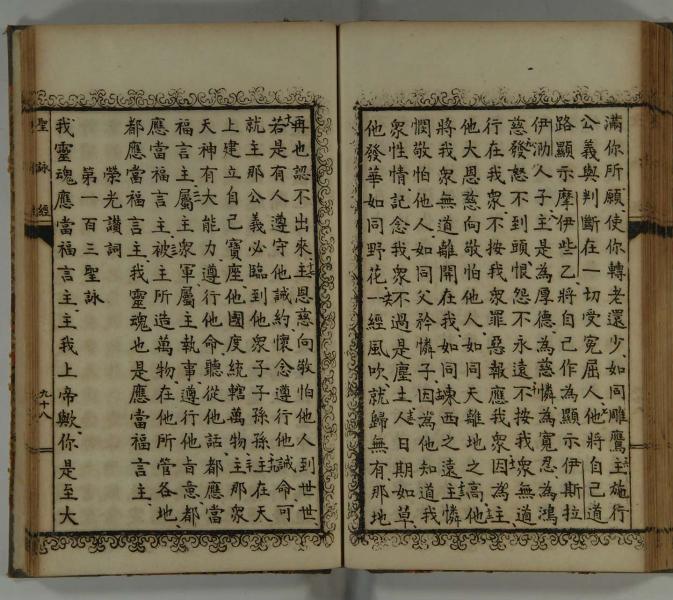 滿你所願使你轉老還少如同雕鷹主施行
公義與判斷在一切受冤屈人他將自己道
路顯示摩伊些乙將自己作為顯示伊斯拉
伊泐人子主是為厚德為慈憐為寬忍為鴻
慈發怒不到頭恨怨不永遠不按我衆無道
行在我衆不按我衆罪惡報應我衆因為
他大恩慈向敬怕他人如同天離地之高他
將我衆無道離開在我如同東西之遠主憐
憫敬怕他人如同父矜憐子因為他知道我
衆性情記念我衆不過是塵土人日期如草
他發華如同野花一經風吹就歸無有那地
再也認不出來主恩慈向敬怕他人到世世
若是有人遵守他誡約懷念遵行他誡命可
就主那公義必臨到他衆子子孫孫主在天
上建立自己寶座他國度統轄萬物主那衆
天神有大能力遵行他命聽從他話都應當
福言主屬主衆軍屬主執事遵行他旨意都
應當福言主被主所造萬物在他所管各地
都應當福言主我靈魂也是應當福言主
榮光讚詞
第一百三聖詠
我靈魂應當福言主主我上帝歟你是至大
聖詠經
九十八